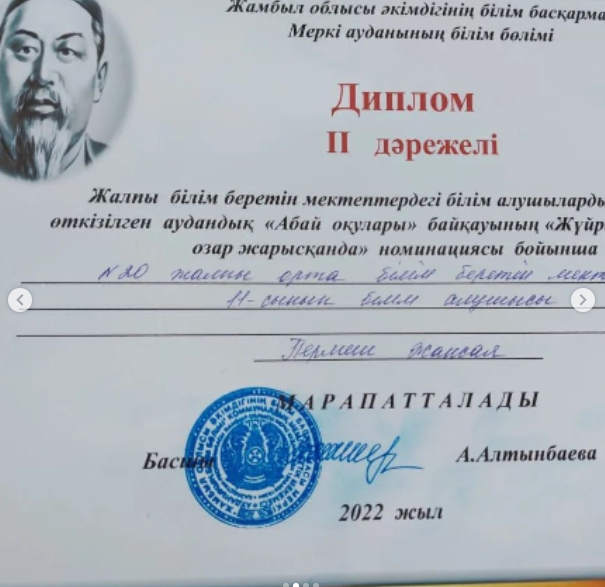 Жамбыл облысы әкімдігінің білім басқарма
Меркі ауданының білім бөлімі
Диплом
ІІ дәрежелі
Жалпы білім беретін мектептердегі білім алушыларды
өткізілген аудандық «Абай оқулары» байқауының «Жүйр
озар жарысқанда» номинациясы бойынша
№20 жалпы орта білім беретін мект
11-сынып білім алушысы
Пермеш Жансая
МАРАПАТТАЛАДЫ
Басшы А.Алтынбаева
2022 жыл